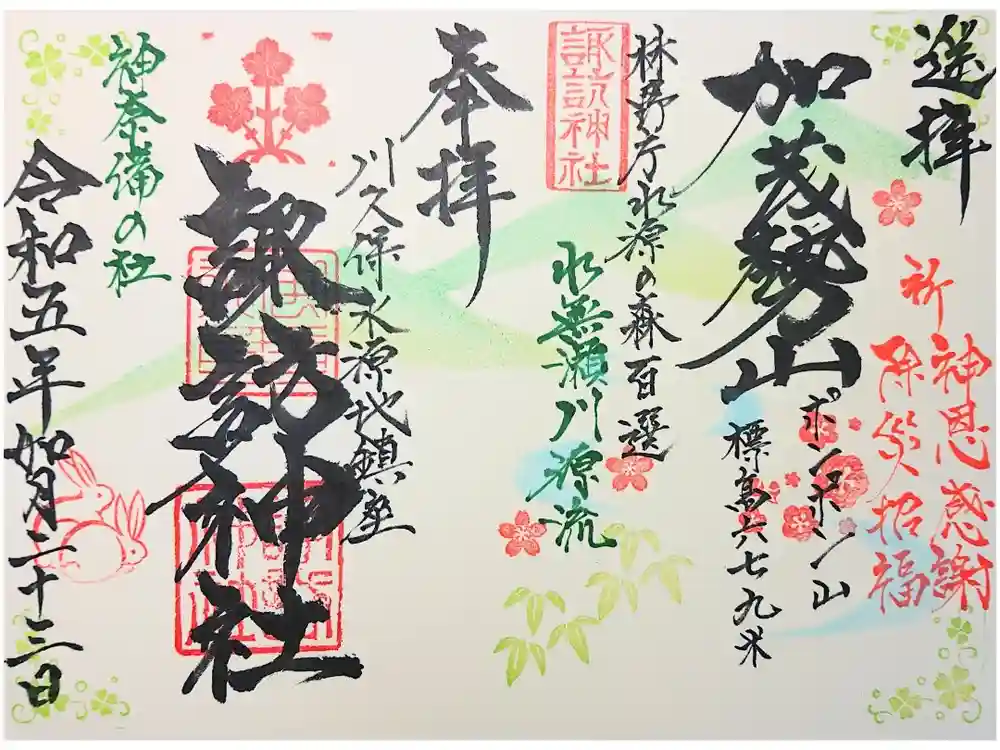 遥拝
祈
神恩感謝
除災招福
加茂勢山
ポンポン山
標高六七九米
林野庁水源の森百選
諏訪神社
水無瀬川源流
奉拝
川久保水源地鎮座
諏訪神社
神奈備の社
令和五年如月二十三日